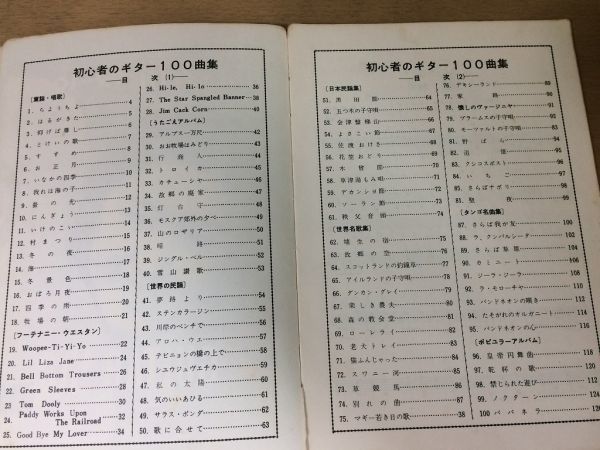 初心者のギター100曲集
目 次 (1)
[童謡・唱歌]
1. ちょうちょ 4
2. はるがきた 5
3. 仰げば尊し 6
4. とけいの歌 7
5. す ず め 8
6. お 正 月 8
7. いなかの四季 9
8. 我れは海の子 11
9. 蛍 の 光 12
10. にんぎょう 13
11. いけのこい 14
12. 村 ま つ り 15
13. 冬 の 夜 16
14. 海 18
15. 冬 景 色 18
16. おぼろ月夜 19
17. 四 季 の 雨 20
18. 牧 場 の 朝 21
[フーテナニー・ウエスタン]
19. Woopee-Ti-Yi-Yo 22
20. Lil Liza Jane 24
21. Bell Bottom Trousers 26
22. Green Sleeves 28
23 Tom Dooly 30
24. Paddy Works Upon
The Railroad 32
25. Good Bye My Lover 34
26. Hi-le, Hi-lo 36
27. The Star Spangled Banner 38
28. Jim Cack Corn 40
[うたごえアルバム]
29. アルプス一万尺 42
30. おお牧場はみどり 43
31. 行 商 人 44
32. ト ロ イ カ 45
33. カチューシャ 46
34. 故 郷 の 廃 家 47
35. 灯 台 守 48
36. モスクア郊外の夕べ 49
37. 山のロザリア 50
38. 51
39. ジングル・ベル 52
40. 雪 山 讃 歌 53
[世界の民謡]
41. 夢 路 よ り 54
42. ステンカラージン 55
43. 川岸のベンチで 56
44. ア ロ ハ ・ ウ エ 57
45. アビニョンの橋の上で 58
46. シユウジュヴェチカ 59
47. 私 の 太 陽 60
48. 気のいいあひる 61
49. サラス・ポンダ 62
50. 歌 に 合 せ て 63
初心者のギター100曲集
目 次 (2)
[日本民謡集]
51. 黒 田 節
52. 五つ木の子守唄
53. 会 津 磐 梯 山
54. よ さ こ い 節
55. 佐 渡 お け さ
56. 花 笠 お ど り
57. 木 曽 節
58. 草津湯もみ唄
59. デ カ ン シ ョ 節
60. ソ ー ラ ン 節
61. 秩 父 音 頭 74
[世界名歌集]
62. 埴 生 の 宿 75
63. 故 郷 の 空 76
64. スコットランドの釣鐘草 77
65. アイルランドの子守唄 78
66. グンカン・グレイ 79
67. 楽 し き 農 夫 80
68. 森 の 教 会 堂 81
69. ロ ー レ ラ イ 82
70. 老 犬 ト レ イ 83
71. 猫ふんじゃった 84
72. ス ワ ニ ー 河 85
73. 草 競 馬 86
74. 別 れ の 曲 87
75. マギー若き日の歌 88
76. デキシーランド 89
77. 家 路 90
78. 懐しのヴァージニヤ 91
79. ブラームスの子守唄 92
80. モーツァルトの子守唄 93
81. 野 ば ら 94
82. 追 憶 95
83. クシコスポスト 96
84. い ち ご 97
85. さらばナポリ 98
86. 聖 夜 99
[タンゴ名曲集]
87. さらば我が友 100
88. ラ、クンパルシータ 102
89. さ ら ば 草 原 104
90. カ ミ ニ ー ト 106
91. ジーラ・ジーラ 108
92. ラ・モローチャ 110
93. バンドネオンの嘆き 112
94. たそがれのカルガニート 114
95. バンドネオンの心 116
[ポピュラーアルバム]
96. 皇 帝 円 舞 曲 118
97. 乾 杯 の 歌 120
98. 禁じられた遊び 112
99. ノ ク タ ー ン 124
100 パ パ ネ ラ 126